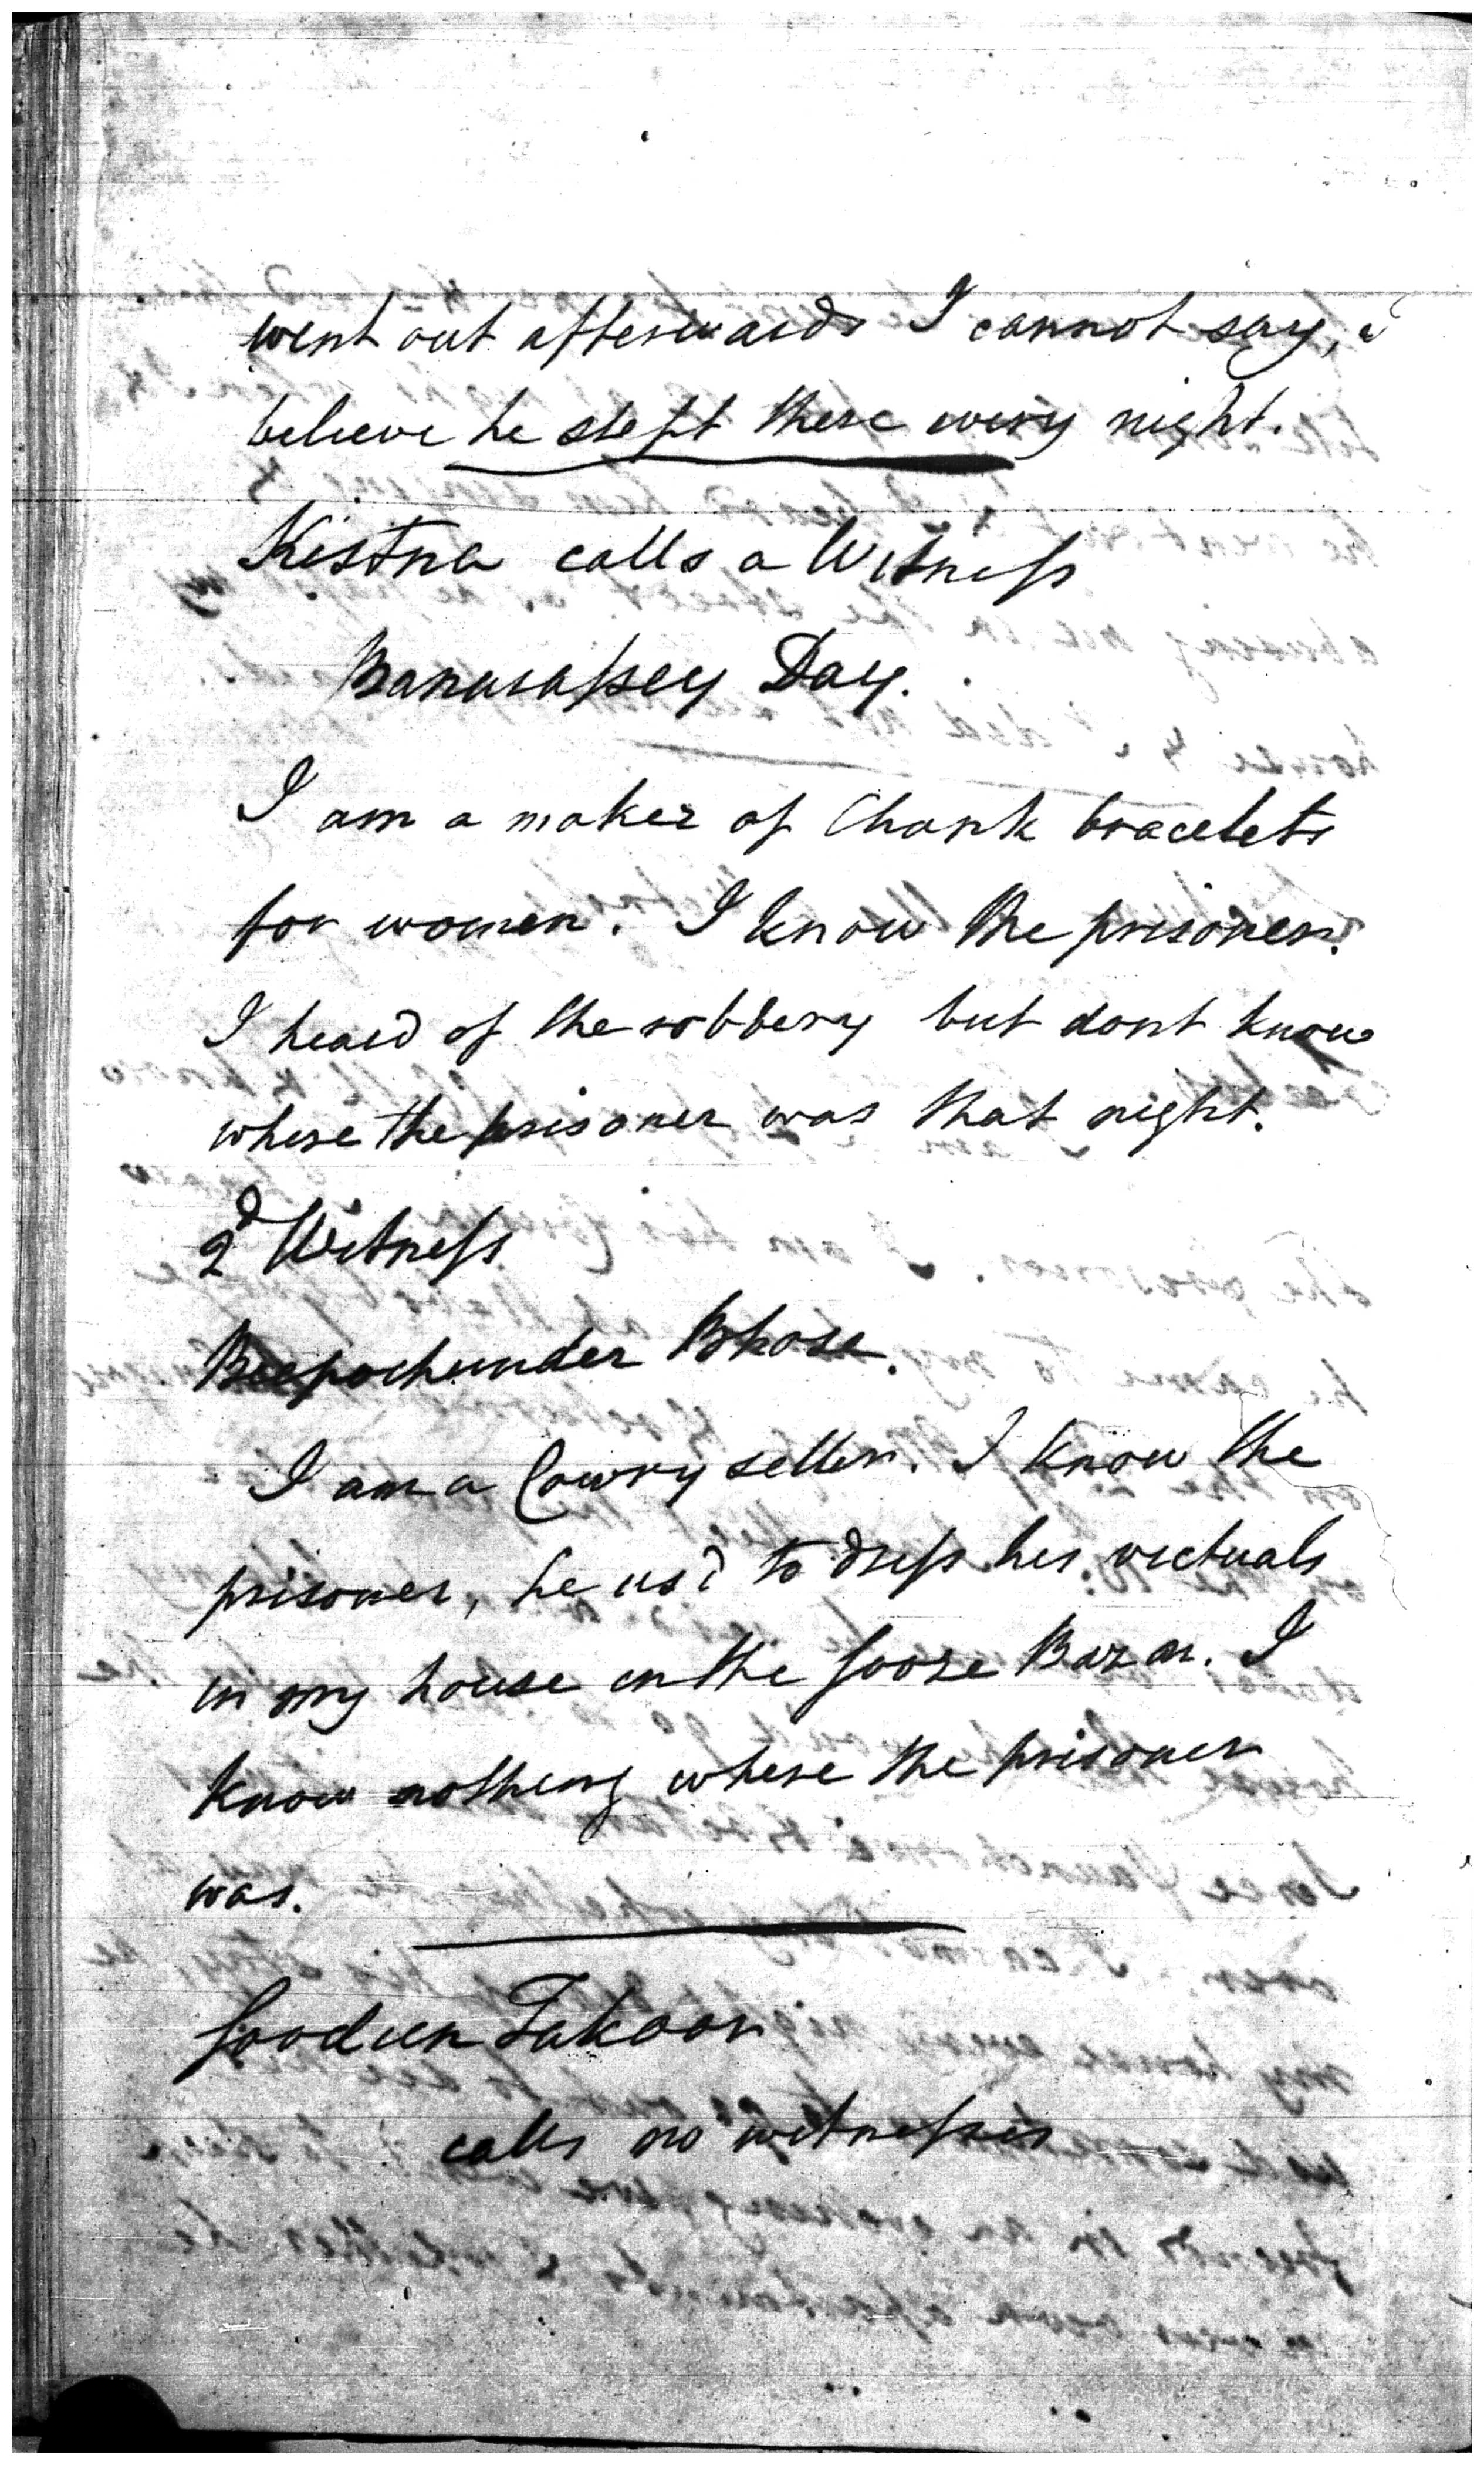 went out afterwards I cannot say, I
believe he slept there every night.
Kistna calls a Witness
Banarassey Day.
I am a maker of Chank bracelets
for women. I know the prisoner.
I heard of the robbery but dont know
where the prisoner was that night.
2d Witness
Beepochunder Bhose.
I am a Cowry seller. I know the
prisoner, he us'd to dress his victuals
in my house in the Soore Bazar. I
know nothing where the prisoner
was.
Soodien Takoor
calls no witnesses